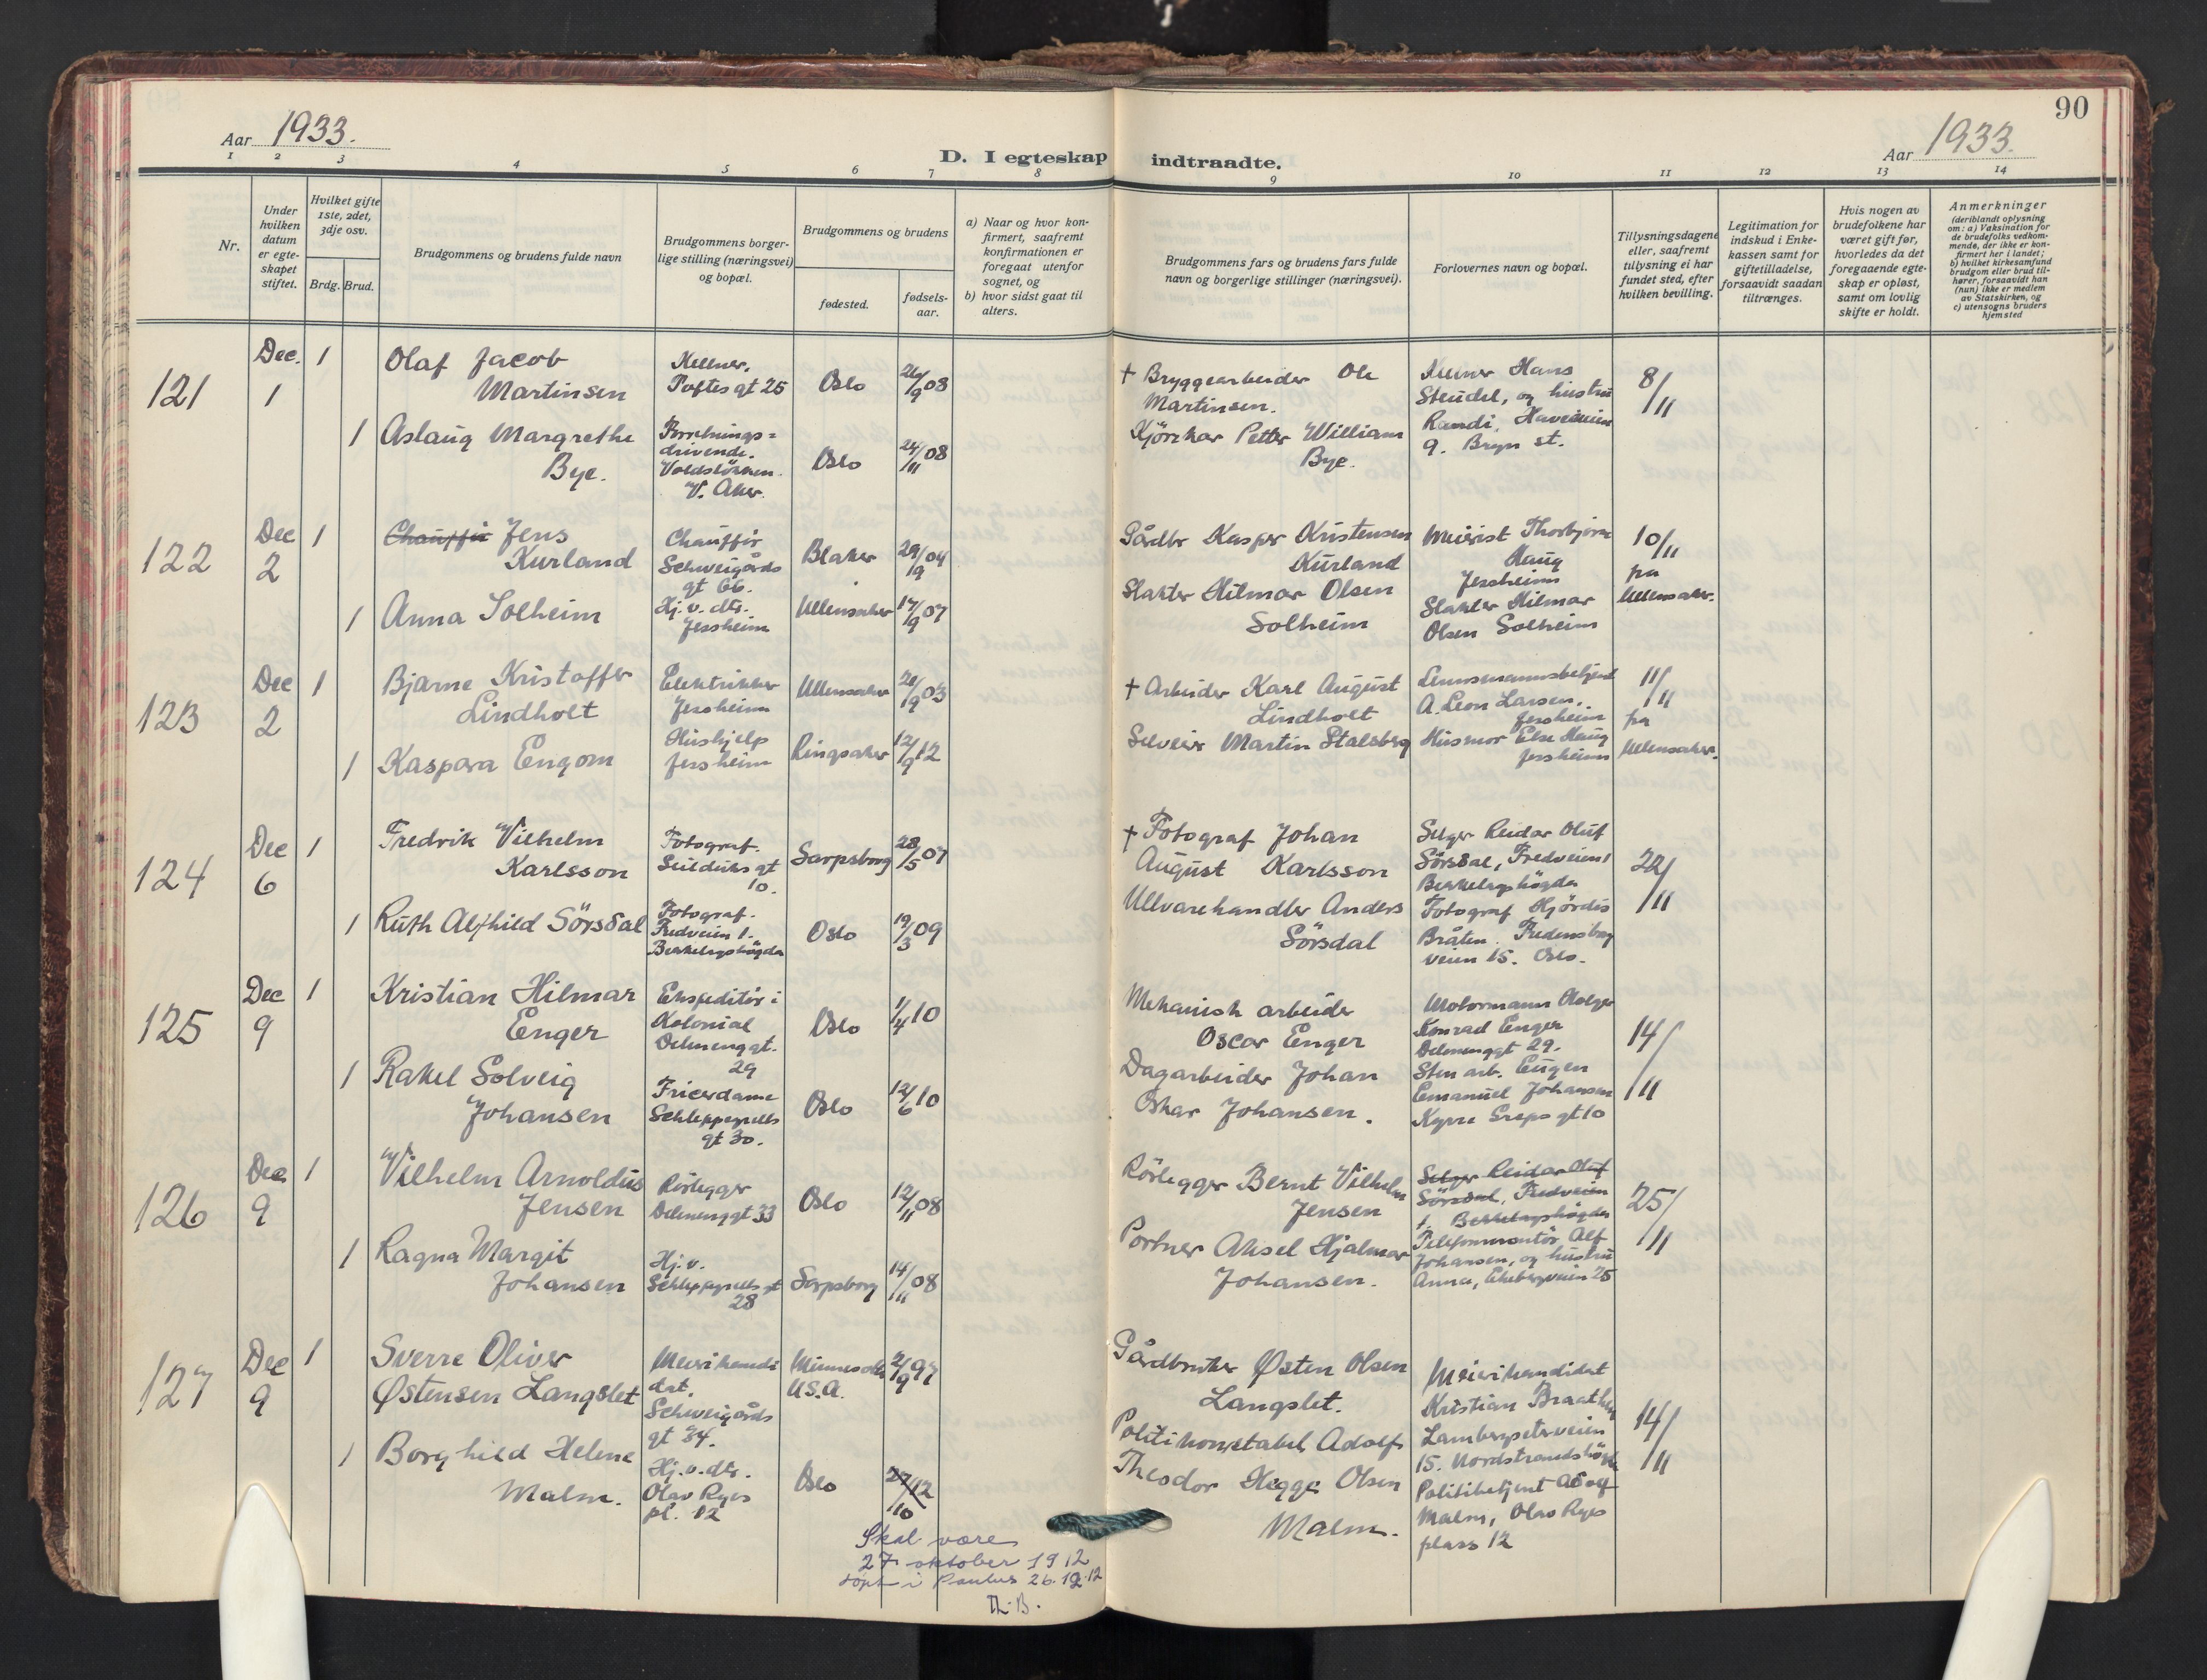 90
Aar 1933.
Aar 1933.
D. I egteskap indtraadte.
1 2 3 4 5 6 7 8 9 10 11 12 13 14
Nr.
Under
hvilken
datum
er egte-
skapet
stiftet.
Hvilket gifte
1ste, 2det,
3dje osv.
Brdg. Brud.
Brudgommens og brudens fulde navn
Brudgommens borger-
lige stilling (næringsvei)
og bopæl.
Brudgommens og brudens
fødested.
fødsels-
aar.
a) Naar og hvor kon-
firmert, saafremt
konfirmationen er
foregaat utenfor
sognet, og
b) hvor sidst gaat til
alters.
Brudgommens fars og brudens fars fulde
navn og borgerlige stillinger (næringsvei).
Forlovernes navn og bopæl.
Tillysningsdagene
eller, saafremt
tillysning ei har
fundet sted, efter
hvilken bevilling.
Legitimation for
indskud i Enke-
kassen samt for
giftetilladelse,
forsaavidt saadan
tiltrænges.
Hvis nogen av
brudefolkene har
været gift før,
hvorledes da det
foregaaende egte-
skap er opløst,
samt om lovlig
skifte er holdt.
Anmerkninger
(deriblandt oplysning
om: a) Vaksination for
de brudefolks vedkom-
mende, der ikke er kon-
firmert her i landet;
b) hvilket kirkesamfund
brudgom eller brud til-
hører, forsaavidt han
(hun) ikke er medlem
av Statskirken, og
c) utensogns bruders
hjemsted
121
Dec.
1
1
Olaf Jacob
Martinsen
Kellner.
Toftes gt 25
Oslo
26/9 08
† Bryggearbeider Ole
Martinsen.
Kellner Hans
Steudel, og hustru
Randi, Haveveien
9. Bryn st.
8/11
1
Aslaug Margrethe
Bye.
Forretnings=
drivende.
Voldsløkken.
V. Aker.
Oslo
24/11 08
Kjørekar Petter William
Bye.
122
Dec
2
1
Chauffør Jens
Kurland
Chauffør
Schweigårds
gt 66.
Blaker
29/9 04
Gårdbr Kasper Kristensen
Kurland
Meierist Thorbjørn
Haug
Jessheim
10/11
fra
Ullensaker.
1
Anna Solheim
Hj. v. dtr.
Jessheim
Ullensaker
17/9 07
Slakter Hilmar Olsen
Solheim
Slakter Hilmar
Olsen Solheim
123
Dec
2
1
Bjarne Kristoffer
Lindholt
Elektriker
Jessheim
Ullensaker
26/9 03
† Arbeider Karl August
Lindholt
Lensmannsbetjent
A. Leon Larsen.
Jessheim
11/11
fra
Ullensaker.
1
Kaspara Engom
Hushjelp
Jessheim
Ringsaker
12/9 12
Selveier Martin Stalsberg
Husmor Else Haug
Jessheim
124
Dec
6
1
Fredrik Vilhelm
Karlsson
Fotograf.
Seilduks gt
10.
Sarpsborg
28/5 07
† Fotograf Johan
August Karlsson
Selger Reidar Oluf
Sørsdal, Fredveien 1
Bekkelagshøgda
22/11
1
Ruth Alfhild Sørsdal
Fotograf.
Fredveien 1.
Bekkelagshøgda
Oslo
19/3 09
Ullvarehandler Anders
Sørsdal
Fotograf Hjørdis
Bråten. Fredensborg
veien 15. Oslo.
125
Dec
9
1
Kristian Hilmar
Enger
Ekspeditør i
Kolonial
Delenenggt.
29
Oslo
1/4 10
Mekanisk arbeider
Oscar Enger
Motormann Holger
Konrad Enger
Delenenggt 29.
14/11
1
Rakel Solveig
Johansen
Friserdame
Schleppegrells
gt 30.
Oslo
12/6 10
Dagarbeider Johan
Oskar Johansen.
Sten arb. Eugen
Emanuel Johansen
Kyrre Greps gt 10
126
Dec
9
1
Vilhelm Arnoldus
Jensen
Rørlegger
Delenenggt 33
Oslo
12/11 08
Rørlegger Bernt Vilhelm
Jensen
Selger Reidar Oluf
Sørsdal, Fredveien
1. Bekkelagshøgda
25/11
1
Ragna Margit
Johansen
Hj. v.
Schleppegrells gt
28
Sarpsborg
14/11 08
Portner Aksel Hjalmar
Johansen.
Telefonmontør Alf
Johansen, og hustru
Anna, Ekebergveien 25
127
Dec
9
1
Sverre Oliver
Østensen Langslet
Meierikandi
dat.
Schweigårds
gt 34.
Minnesota
U.S.A.
2/9 97
Gårdbruker Østen Olsen
Langslet.
Meierikandidat
Kristian Braathen
Lambertseterveien
15. Nordstrandshøgda
14/11
1
Borghild Helene
Malm.
Hj. v. dtr.
Olav Ryes
pl. 12
Oslo
27/10 12
Politikonstabel Adolf
Theodor Hegge Olsen
Malm.
Politibetjent Adolf
Malm, Olav Ryes
plass 12
Skal være
27 oktober 1912
døpt i Paulus 26.12.12
Th. B.